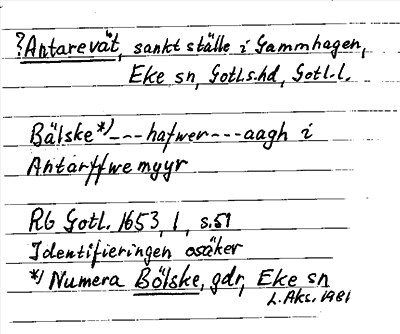 ?Antarevät, sankt ställe i Gammhagen,
Eke sn, Gotl.s.hd, Gotl.l.
Bälske*)---hafwer---aagh i
Antarffwe myyr
RG Gotl. 1653, 1, s.51
Identifieringen osäker
*) Numera Bölske, gdr, Eke sn
L. Aks. 1981